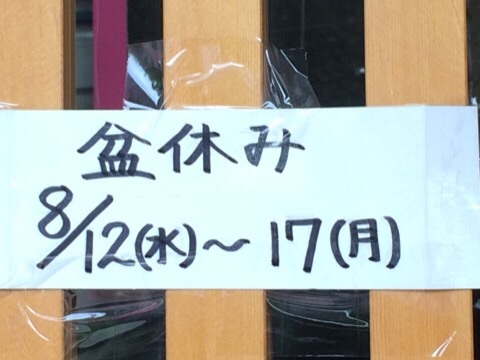 盆休み
8/12(水)～17(月)